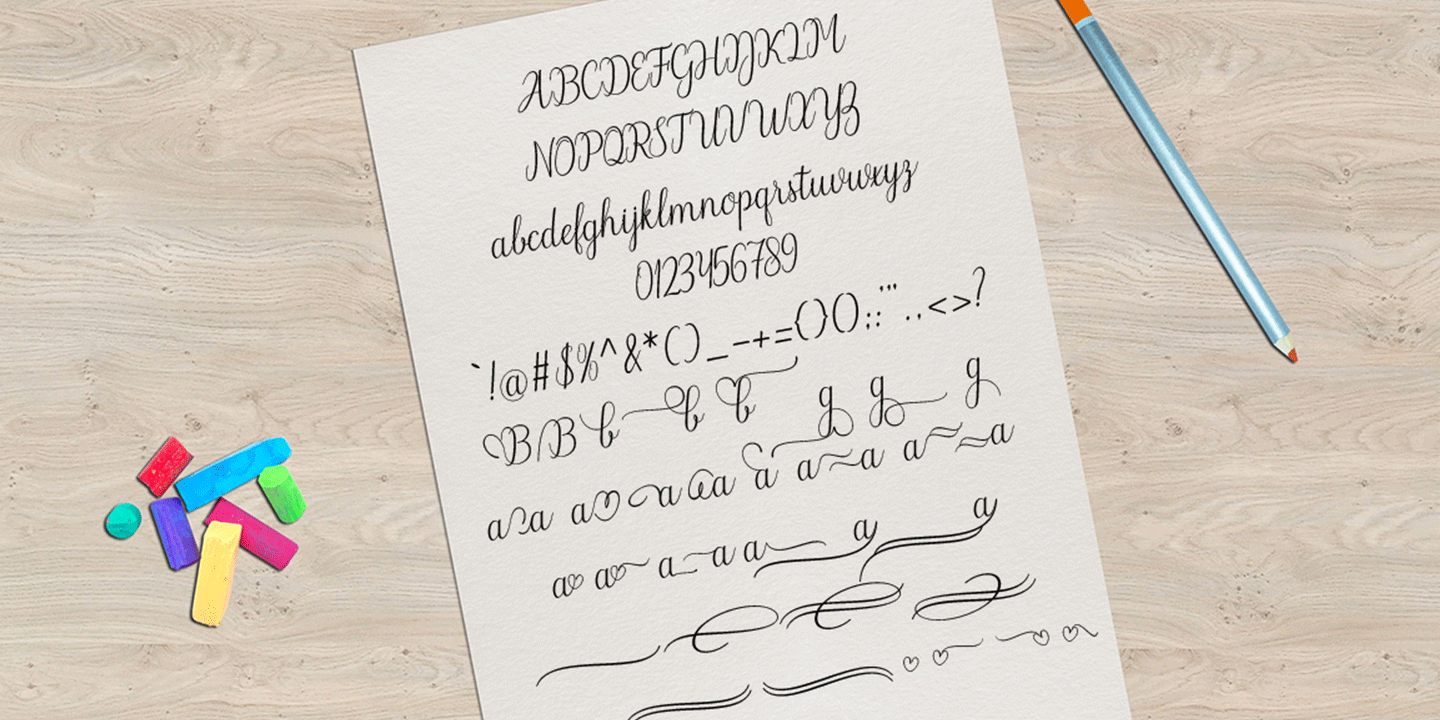 ABCDEFGHIJKLM
NOPQRSTUVWXYZ
abcdefghijklmnopqrstuvwxyz
0123456789
`!@#$%^&*()_-+={}();:"'.,<>?
B B b b b g g g
a a a a a a a a a a
a a a a a a a